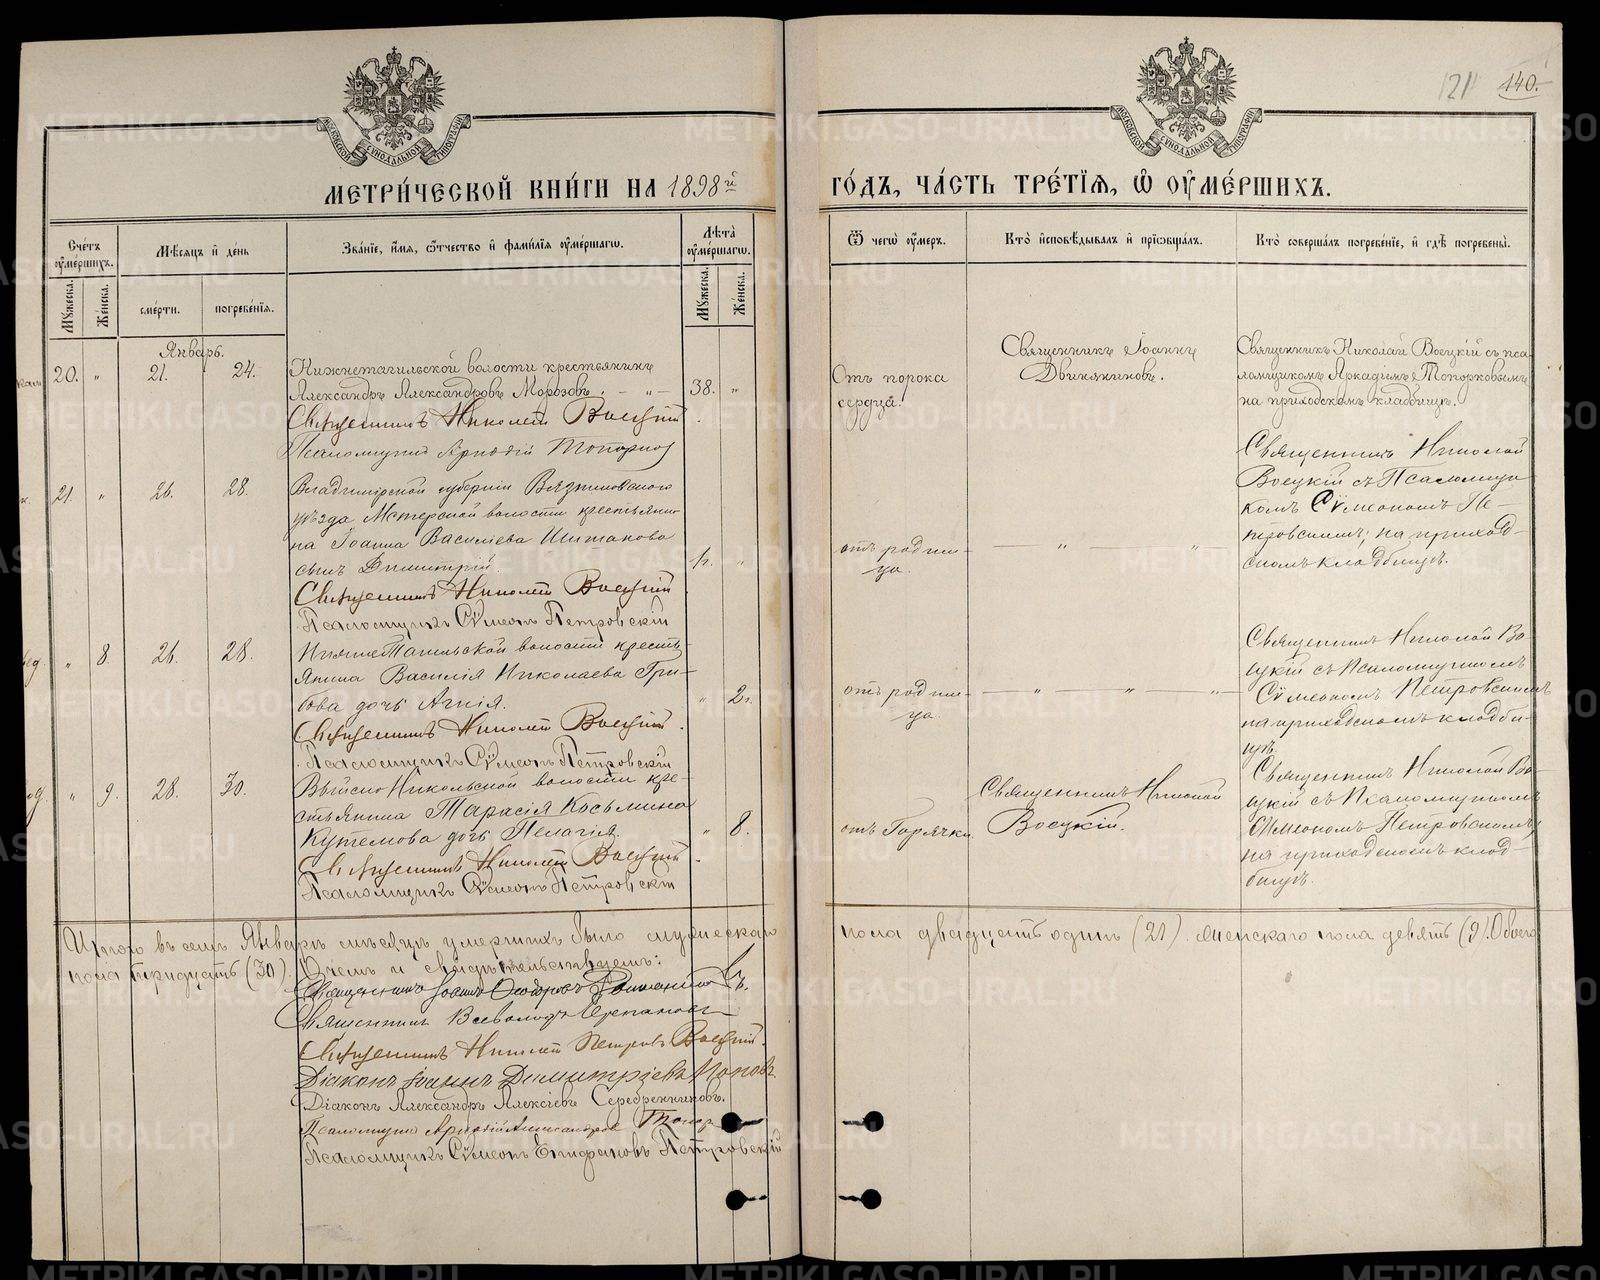 121 140.
МОСКОВСКОЙ СѴНОДАЛЬНОЙ ТИПОГРАФІИ
МОСКОВСКОЙ СѴНОДАЛЬНОЙ ТИПОГРАФІИ
МЕТРИ́ЧЕСКОЙ КНИ́ГИ НА 1898й
ГО́ДЪ, ЧА́СТЬ ТРЕ́ТІЯ, Ѡ ОУ҆МЕ́РШИХЪ.
Сче́тъ оу҆ме́ршихъ.
Мꙋ́жеска.
Же́нска.
Мѣ́сяцъ и҆ де́нь
сме́рти.
погребе́нїя.
Зва́нїе, и҆́мя, ѻ҆́тчество и҆ фами́лїя оу҆ме́ршагѡ.
Лѣ́та оу҆ме́ршагѡ.
Мꙋ́жеска.
Же́нска.
Ѿ чегѡ̀ оу҆́меръ.
Кто̀ и҆сповѣ́дывалъ и҆ прїѡбща́лъ.
Кто̀ соверша́лъ погребе́нїе, и҆ гдѣ̀ погребены̀.
Январь.
20. " 21. 24.
Нижнетагильской волости крестьянинъ
Александръ Александровъ Морозовъ. – " –
38. "
Священникъ Николай Воецкій
Псаломщикъ Аркадій Топорков
Отъ порока
сердца.
Священникъ Іоаннъ
Двиняниновъ.
Священникъ Николай Воецкій съ пса-
ломщикомъ Аркадіемъ Топорковымъ
на приходскомъ кладбищѣ.
21. " 26. 28.
Владимірской губерніи Вязниковскаго
уѣзда Мстерской волости крестьяни-
на Іоанна Василіева Шитакова
сынъ Димитрій.
1г. "
Священникъ Николай Воецкій
Псаломщикъ Сѵмеонъ Петровскій
отъ родим-
ца.
" "
Священникъ Николай
Воецкій съ Псаломщи-
комъ Сѵмеономъ Пе-
тровскимъ; на приход-
скомъ кладбищѣ.
" 8. 26. 28.
Нижнетагильской волости кресть-
янина Василія Николаева Гри-
бова дочь Агнія.
" 2г.
Священникъ Николай Воецкій.
Псаломщикъ Сѵмеонъ Петровскій
отъ родим-
ца.
" " "
Священникъ Николай Во-
ецкій съ Псаломщикомъ
Сѵмеономъ Петровскимъ
на приходскомъ кладби-
щѣ.
" 9. 28. 30.
Выйско Никольской волости кре-
стьянина Тарасія Косьмина
Кутемова дочь Пелагія.
" 8.
Священникъ Николай Воецкій
Псаломщикъ Сѵмеонъ Петровскій
отъ Горячки
Священникъ Николай
Воецкій.
Священникъ Николай Во-
ецкій съ Псаломщикомъ
Симеономъ Петровскимъ,
на приходскомъ клад-
бищѣ.
Итого въ семъ Январѣ мѣсяцѣ умершихъ было мужескаго
пола двадцать одинъ (21). женскаго пола девять (9). Обоего
пола тридцать (30). О чемъ и свидѣтельствуемъ:
Священникъ Іоаннъ
Священникъ Всеволодъ
Священникъ Николай Петровъ Воецкій.
Діаконъ Іоаннъ Димитріевъ Поповъ.
Діаконъ Александръ Алексіевъ Серебренниковъ.
Псаломщикъ Аркадій Александров Топор
Псаломщикъ Сѵмеонъ Епифановъ Петровскій
METRIKI.GASO-URAL.RU